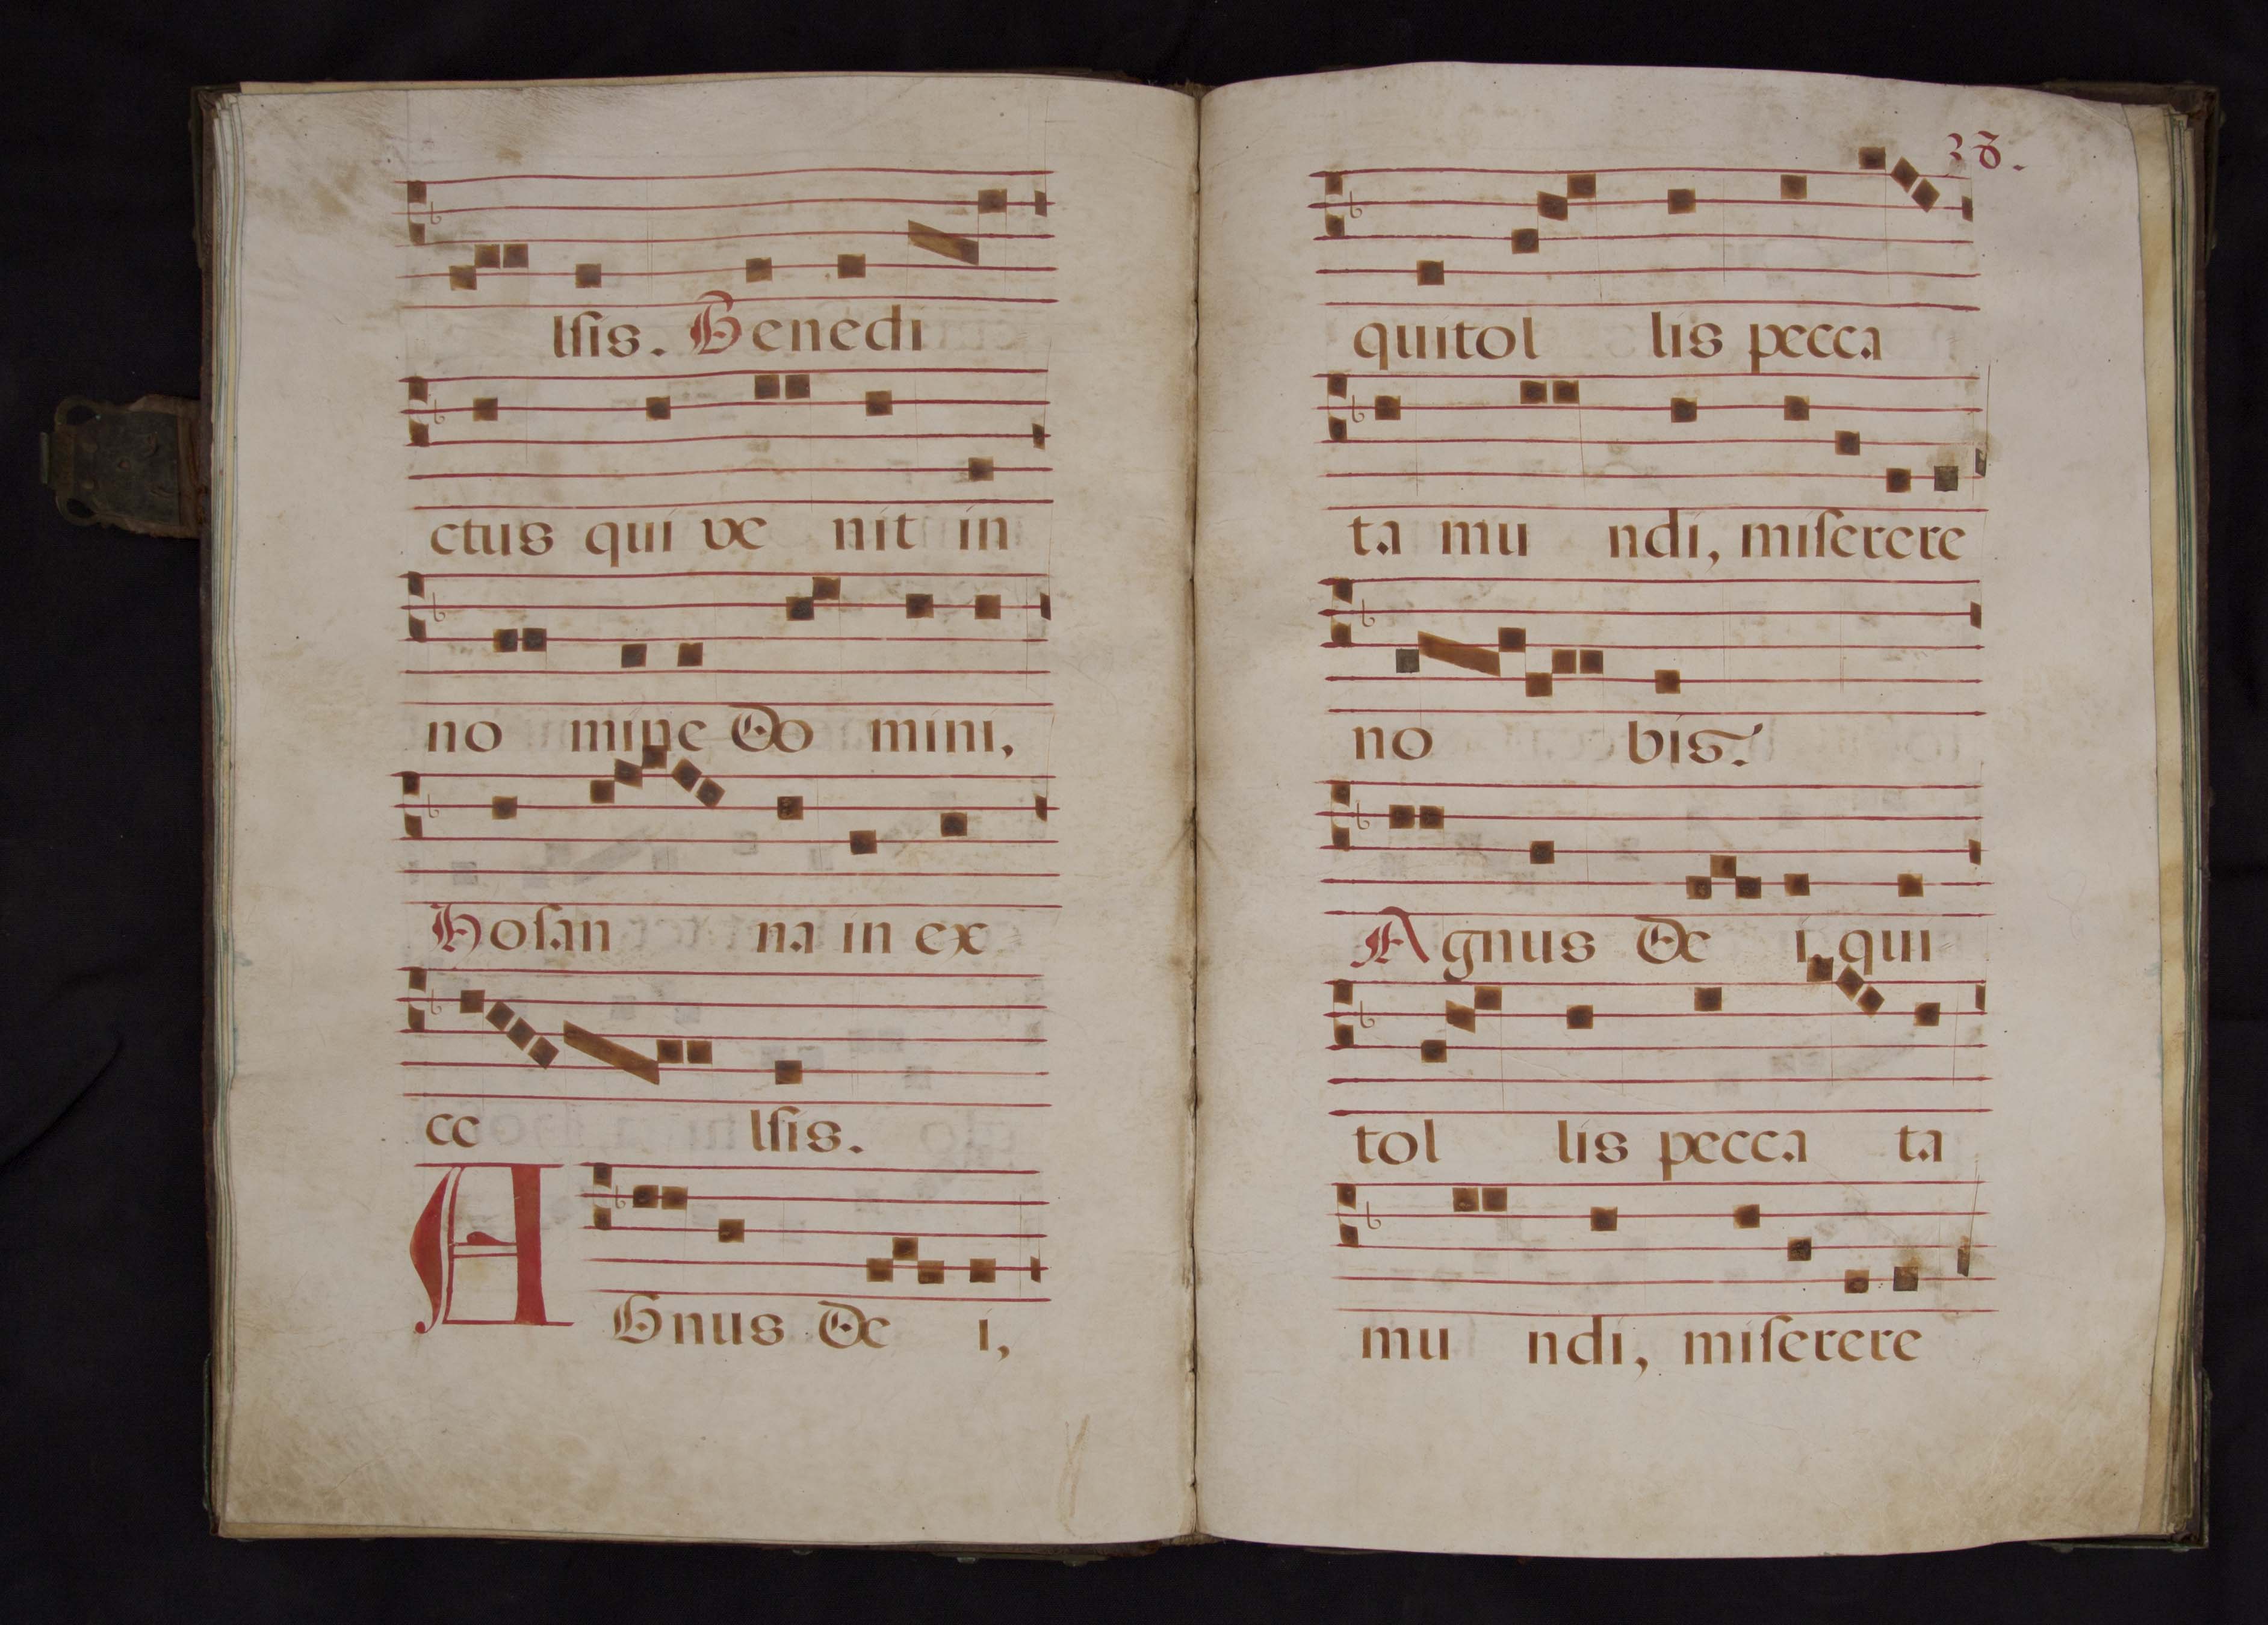 lſis. Benedi
ctus qui ve nit in
no mine Do mini,
Hoſan na in ex
ce lſis.
AGnus De i,
38.
qui tol lis pecca
ta mu ndi, miſerere
no bis.
Agnus De i, qui
tol lis pecca ta
mu ndi, miſerere